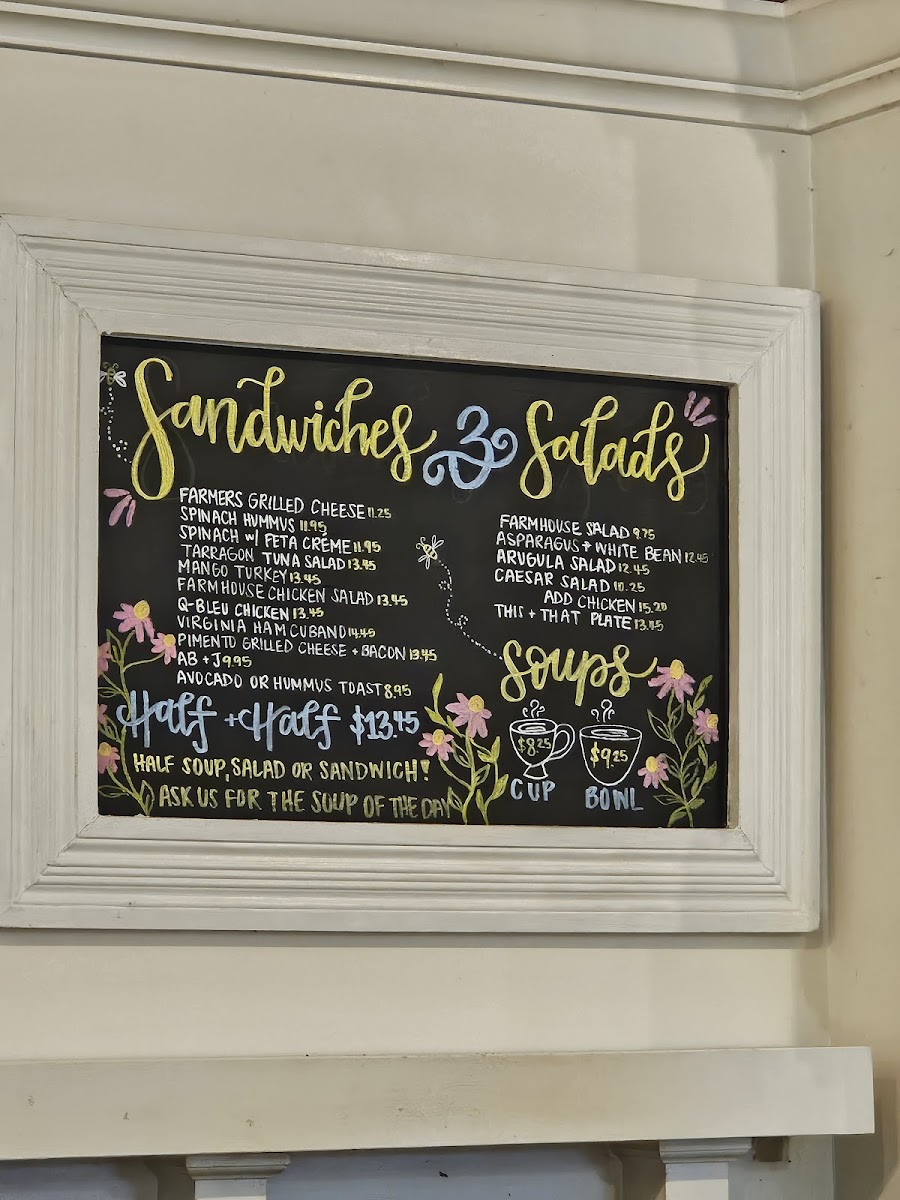 Sandwiches & Salads
FARMERS GRILLED CHEESE 11.25
SPINACH HUMMUS 11.95
SPINACH W/ FETA CRÈME 11.95
TARRAGON TUNA SALAD 13.45
MANGO TURKEY 13.45
FARMHOUSE CHICKEN SALAD 13.45
Q-BLEU CHICKEN 13.45
VIRGINIA HAM CUBANO 14.45
PIMENTO GRILLED CHEESE + BACON 13.45
AB + J 9.95
AVOCADO OR HUMMUS TOAST 8.95
Half + Half $13.45
HALF SOUP, SALAD OR SANDWICH!
ASK US FOR THE SOUP OF THE DAY
FARMHOUSE SALAD 9.75
ASPARAGUS + WHITE BEAN 12.45
ARUGULA SALAD 12.45
CAESAR SALAD 10.25
ADD CHICKEN 15.20
THIS + THAT PLATE 13.45
Soups
$8.25 $9.25
CUP BOWL